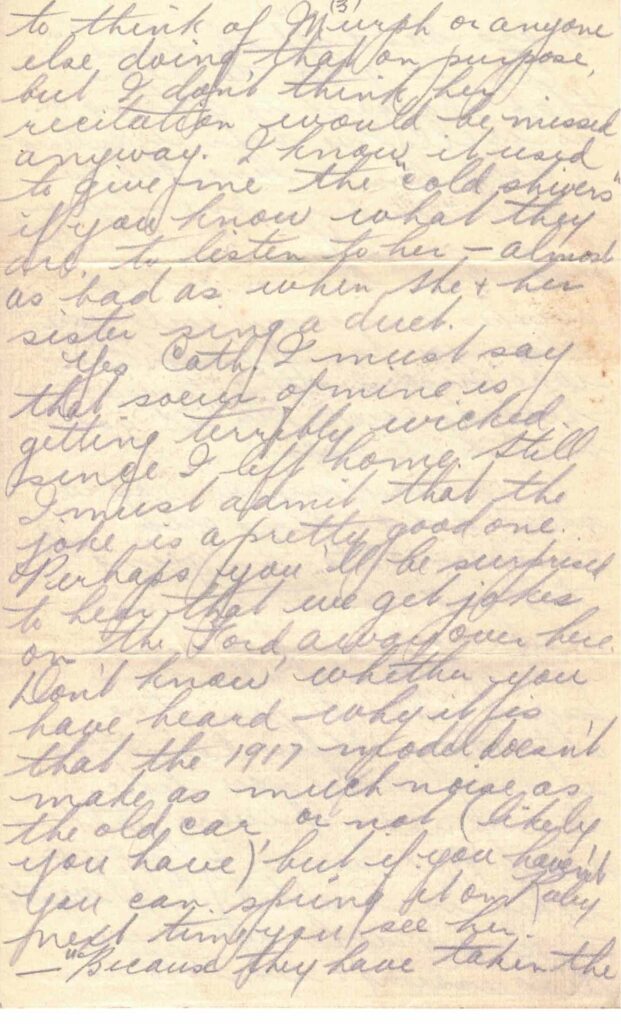 (3)
to think of Murph or anyone
else doing that on purpose,
but I don't think her
recitation would be missed
anyway. I know it used
to give me the "cold shivers"
if you know what they
are, to listen to her – almost
as bad as when she + her
sister sing a duet.
Yes Cath. I must say
that soeur of mine is
getting terribly wicked.
since I left home. Still
I must admit that the
joke is a pretty good one.
Perhaps you'll be surprised
to hear that we get jokes
on the Ford, away over here.
Don't know whether you
have heard why it is
that the 1917 model doesn't
make as much noise as
the old car or not (likely
you have) but if you haven't
you can spring it on
next time you see her.
– "Because they have taken the